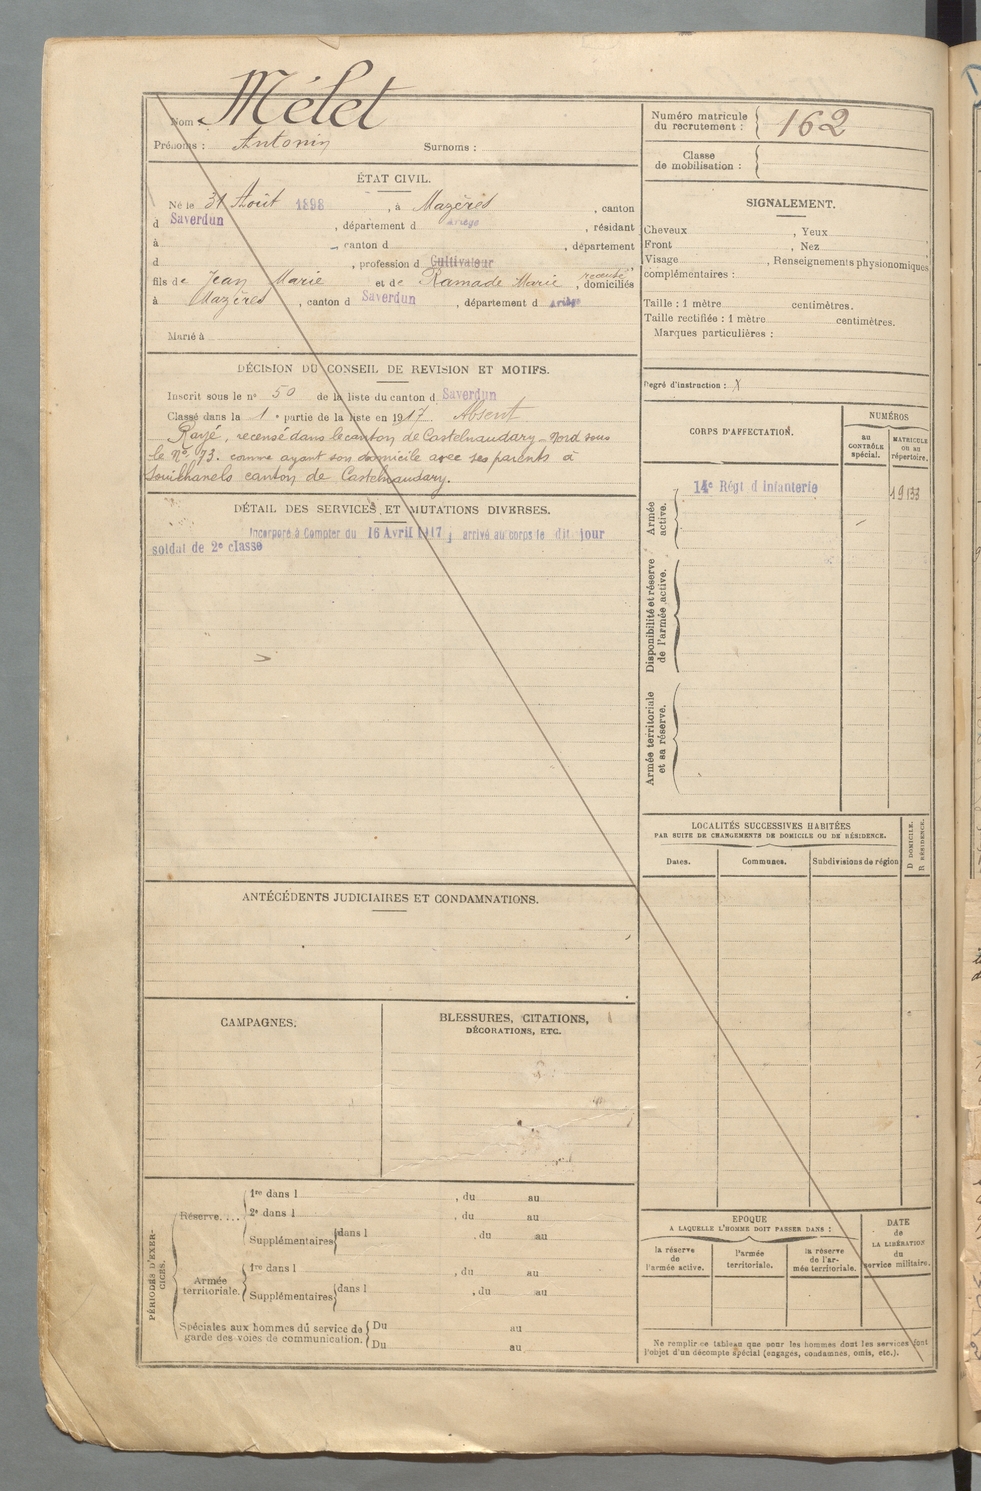 Nom : Mélet
Prénoms : Antonin Surnoms :
ÉTAT CIVIL.
Né le 31 Août 1898, à Mazères, canton
d Saverdun, département d Ariège, résidant
à , canton d , département
d , profession d Cultivateur
fils de Jean Marie et de Ramade Marie recensé, domiciliés
à Mazères, canton d Saverdun, département d Ariège
Marié à
DÉCISION DU CONSEIL DE REVISION ET MOTIFS.
Inscrit sous le n° 50 de la liste du canton d Saverdun
Classé dans la 1e partie de la liste en 1917 Absent
Rayé, recensé dans le canton de Castelnaudary-Nord sous
le N° 73. comme ayant son domicile avec ses parents à
Souilhanels canton de Castelnaudary.
DÉTAIL DES SERVICES ET MUTATIONS DIVERSES.
Incorporé à Compter du 16 Avril 1917; arrivé au corps le dit jour
soldat de 2e classe
ANTÉCÉDENTS JUDICIAIRES ET CONDAMNATIONS.
CAMPAGNES.
BLESSURES, CITATIONS,
DÉCORATIONS, ETC.
PÉRIODES D'EXERCICES.
Réserve....
1re dans l , du au
2e dans l , du au
Supplémentaires dans l , du au
Armée
territoriale.
1re dans l , du au
Supplémentaires dans l , du au
Spéciales aux hommes du service de
garde des voies de communication.
Du au
Du au
Numéro matricule
du recrutement : 162
Classe
de mobilisation :
SIGNALEMENT.
Cheveux , Yeux
Front , Nez
Visage , Renseignements physionomiques
complémentaires :
Taille : 1 mètre centimètres.
Taille rectifiée : 1 mètre centimètres.
Marques particulières :
Degré d'instruction : X
CORPS D'AFFECTATION.
NUMÉROS
au
CONTRÔLE
spécial.
MATRICULE
ou au
répertoire.
Armée
active.
14e Régt d Infanterie 19133
Disponibilité et réserve
de l'armée active.
Armée territoriale
et sa réserve.
LOCALITÉS SUCCESSIVES HABITÉES
PAR SUITE DE CHANGEMENTS DE DOMICILE OU DE RÉSIDENCE.
Dates. Communes. Subdivisions de région
D DOMICILE.
R RÉSIDENCE.
EPOQUE
A LAQUELLE L'HOMME DOIT PASSER DANS :
la réserve
de
l'armée active.
l'armée
territoriale.
la réserve
de l'ar-
mée territoriale.
DATE
de
LA LIBÉRATION
du
service militaire.
Ne remplir ce tableau que pour les hommes dont les services font
l'objet d'un décompte spécial (engagés, condamnés, omis, etc.).